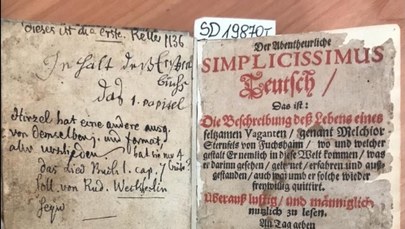 Dieses ist die erste.
Inhalt des
das 1. Capitel
Hirzel hat eine andere ausg.
von demselben und format,
aber
das lied Buch 1. cap. 7
soll von Rud. Weckherlin
seyn
SD 19870
Der Abentheurliche
SIMPLICISSIMUS
Teutsch/
Das ist:
Die Beschreibung deß Lebens eines
seltzamen Vaganten/ genant Melchior
Sternfels von Fuchshaim/ wo und welcher
gestalt Er nemlich in diese Welt kommen/ was
er darinn gesehen/ gelernet/ erfahren und auß-
gestanden/ auch warumb er solche wieder
freywillig quittirt.
Überauß lustig/ und männiglich
nutzlich zu lesen.
An Tag geben